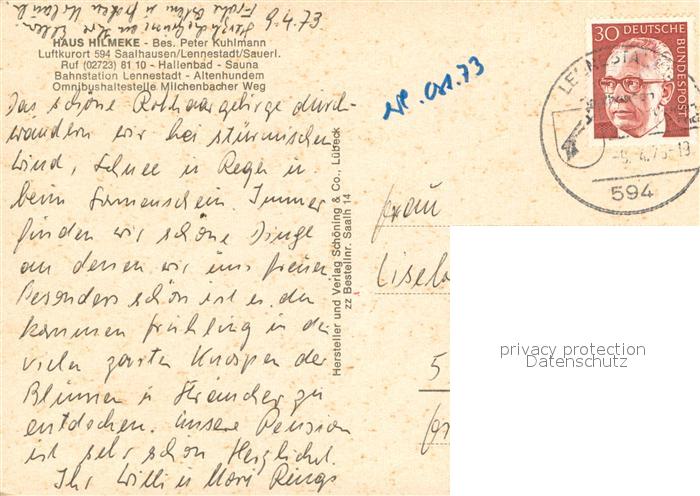 9.4.73
HAUS HILMEKE - Bes. Peter Kuhlmann
Luftkurort 594 Saalhausen/Lennestadt/Sauerl.
Ruf (02723) 81 10 - Hallenbad - Sauna
Bahnstation Lennestadt - Altenhundem
Omnibushaltestelle Milchenbacher Weg
Das schöne Rothaargebirge durch-
wandern wir bei stürmischen
Wind, Schnee u Regen u
beim Sonnenschein. Immer
finden wir schöne Dinge
an denen wir uns freuen.
Besonders schön ist es, den
kommenden Frühling in den
vielen zarten Knospen der
Blumen u Sträucher zu
entdecken. Unsere Pension
ist sehr schön. Herzlichst
Ihr Willi u
Hersteller und Verlag Schöning & Co., Lübeck
zz Bestellnr. Saalh 14
30 DEUTSCHE
BUNDESPOST
594
Frau
5
privacy protection
Datenschutz